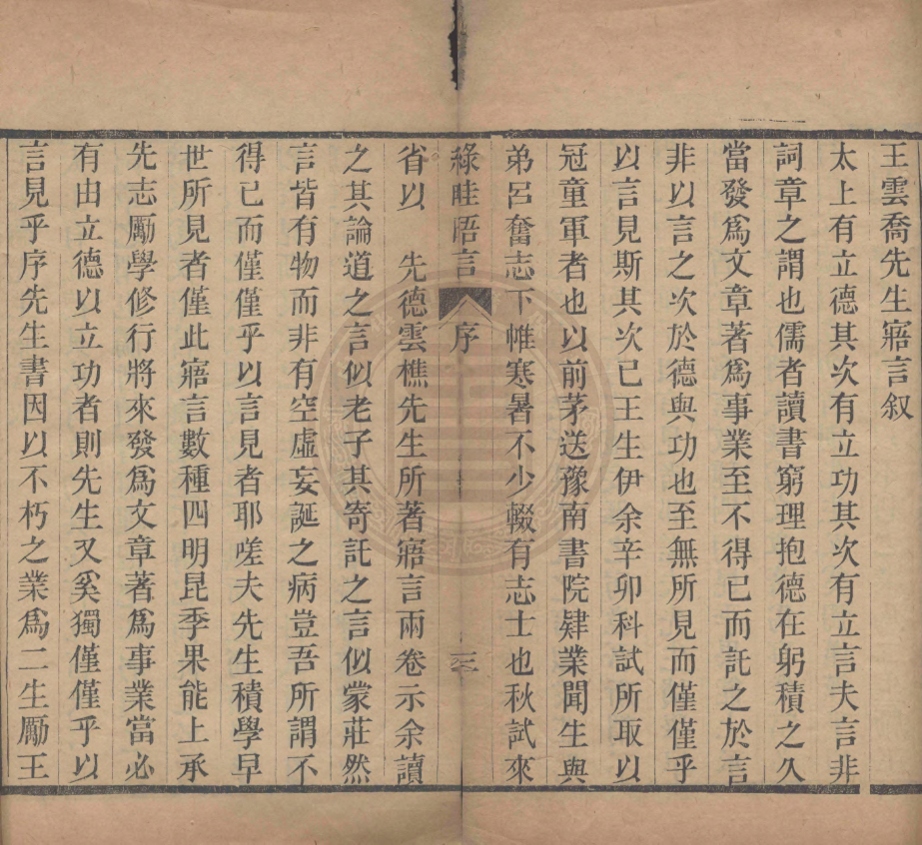 王雲喬先生寤言叙
太上有立德其次有立功其次有立言夫言非
詞章之謂也儒者讀書窮理抱德在躬積之久
當發爲文章著爲事業至不得已而託之於言
非以言之次於德與功也至無所見而僅僅乎
以言見斯其次已王生伊余辛卯科試所取以
冠童軍者也以前茅送豫南書院肄業聞生與
弟呂奮志下帷寒暑不少輟有志士也秋試來
綠畦悟言 序 一
省以 先德雲樵先生所著寤言兩卷示余讀
之其論道之言似老子其寄託之言似蒙莊然
言皆有物而非有空虛妄誕之病豈吾所謂不
得已而僅僅乎以言見者耶嗟夫先生積學早
世所見者僅此寤言數種四明昆季果能上承
先志勵學修行將來發爲文章著爲事業當必
有由立德以立功者則先生又奚獨僅僅乎以
言見乎序先生書因以不朽之業爲二生勵王